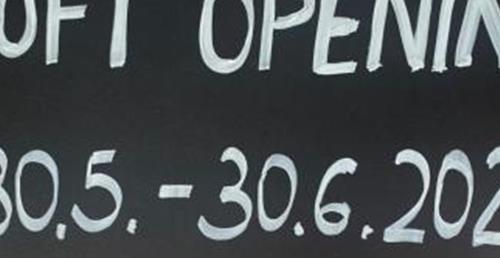 OFT OPENIN
30.5. - 30.6.202